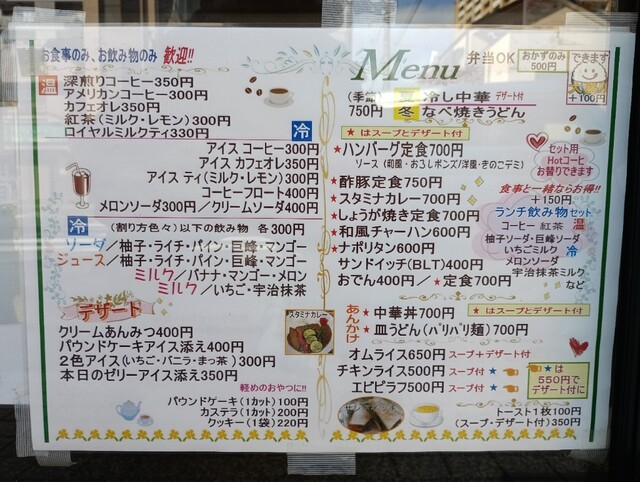 お食事のみ、お飲み物のみ 歓迎!!
温
深煎りコーヒー350円
アメリカンコーヒー300円
カフェオレ350円
紅茶(ミルク・レモン)300円
ロイヤルミルクティ330円
冷
アイス コーヒー300円
アイス カフェオレ350円
アイス ティ(ミルク・レモン)300円
コーヒーフロート400円
メロンソーダ300円/クリームソーダ400円
冷 (割り方色々)以下の飲み物 各300円
ソーダ/柚子・ライチ・パイン・巨峰・マンゴー
ジュース/柚子・ライチ・パイン・巨峰・マンゴー
ミルク/バナナ・マンゴー・メロン
ミルク/いちご・宇治抹茶
デザート
クリームあんみつ400円
パウンドケーキアイス添え400円
2色アイス(いちご・バニラ・まっ茶)300円
本日のゼリーアイス添え350円
スタミナカレー
軽めのおやつに!!
パウンドケーキ(1カット)100円
カステラ(1カット)200円
クッキー(1袋)220円
Menu
弁当OK
おかずのみ
500円
できます
+100円
(季節)
750円
夏 冷し中華 デザート付
冬 なべ焼きうどん
★ はスープとデザート付
★ハンバーグ定食700円
ソース(和風・おろしポンズ/洋風・きのこデミ)
★酢豚定食750円
★スタミナカレー700円
★しょうが焼き定食700円
★和風チャーハン600円
★ナポリタン600円
サンドイッチ(BLT)400円
おでん400円/★定食700円
セット用
Hotコーヒ
お替りできます
食事と一緒ならお得!!
+150円
ランチ飲み物セット
コーヒー 紅茶 温
柚子ソーダ・巨峰ソーダ
いちごミルク 冷
メロンソーダ
宇治抹茶ミルク
など
あんかけ
★中華丼700円
★ はスープとデザート付
★皿うどん(パリパリ麺)700円
オムライス650円 スープ+デザート付
チキンライス500円 スープ付 ★
エビピラフ500円 スープ付 ★
★は
550円で
デザート付に
トースト1枚100円
(スープ・デザート付)350円